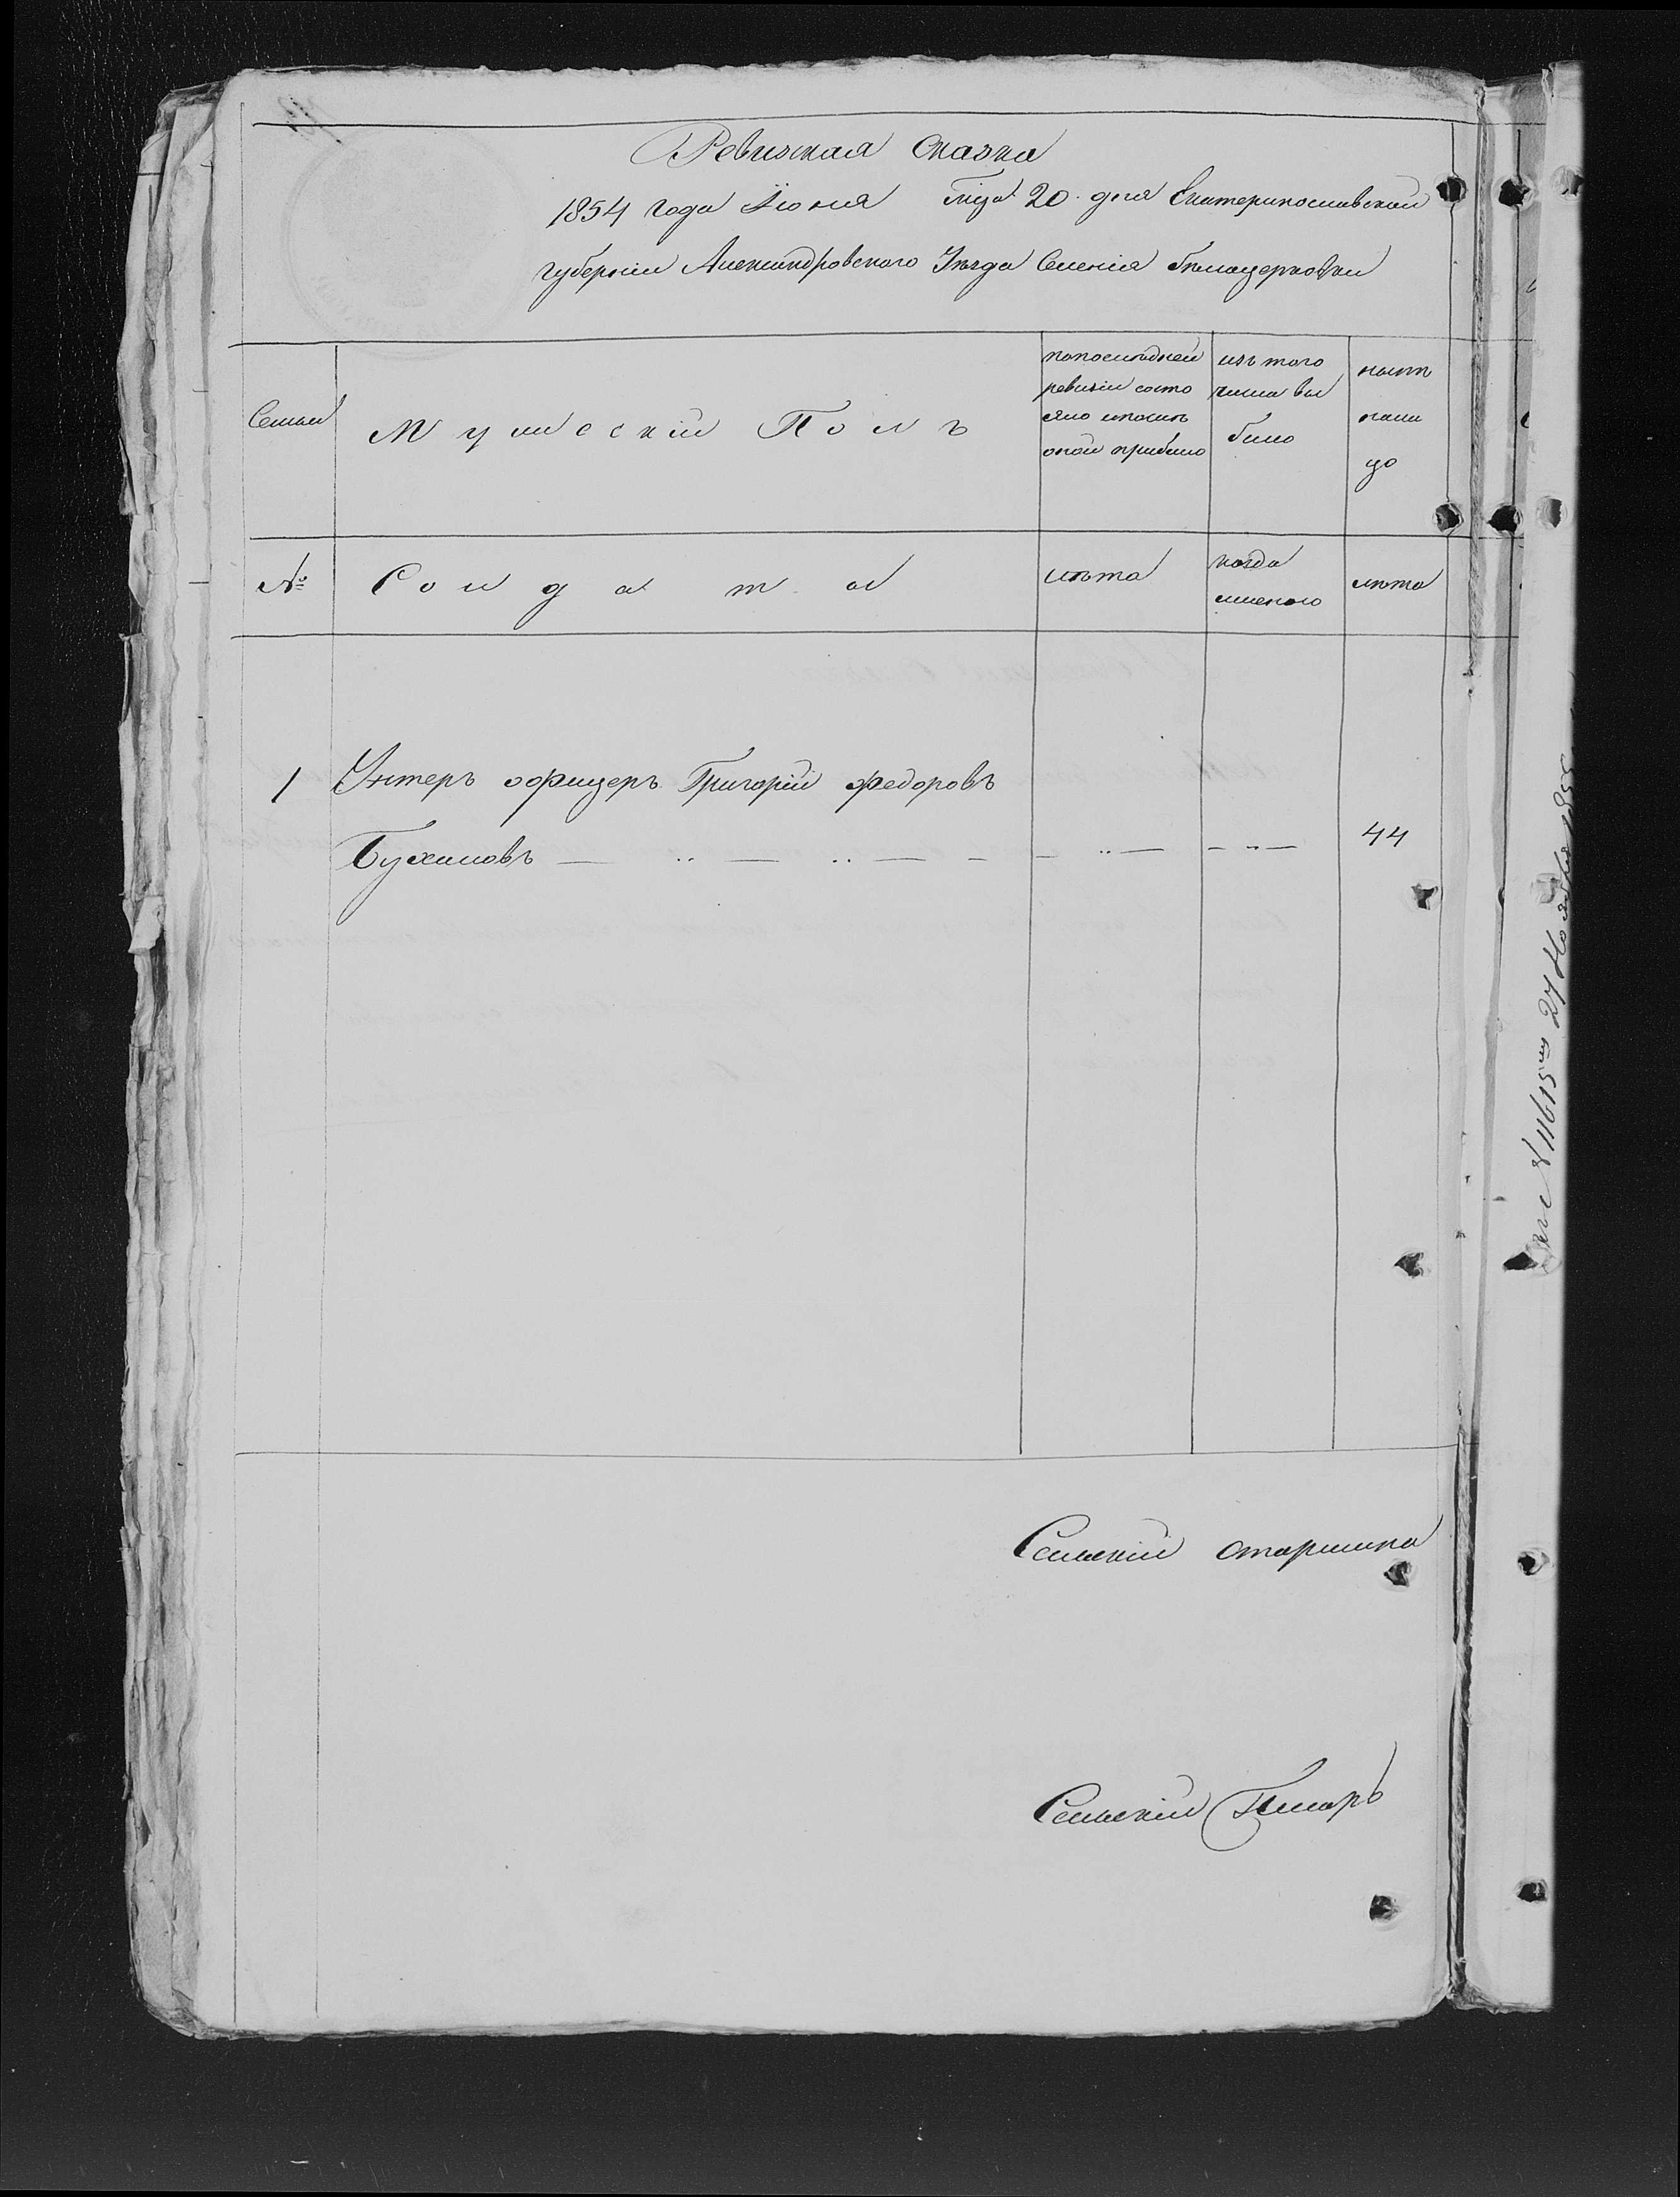 Ревизская Сказка
1854 года Іюня мца 20 дня Екатеринославской
губерніи Александровского Уезда Селенія белоцерковки
Семьи
Мужескій Полъ
попоследней
ревизіи состо
яло ипосле
оной прибыло
изъ того
числа вы
было
ныне
нали
цо
№
Солдаты
лета
когда
именно
лета
1 Унтеръ офицеръ Григорій Федоровъ
Бухаловъ — .. — .. — - - .. — - .. — 44
Сельскій старшина
Сельскій Писарь
№ 11615 27 Ноября 1855